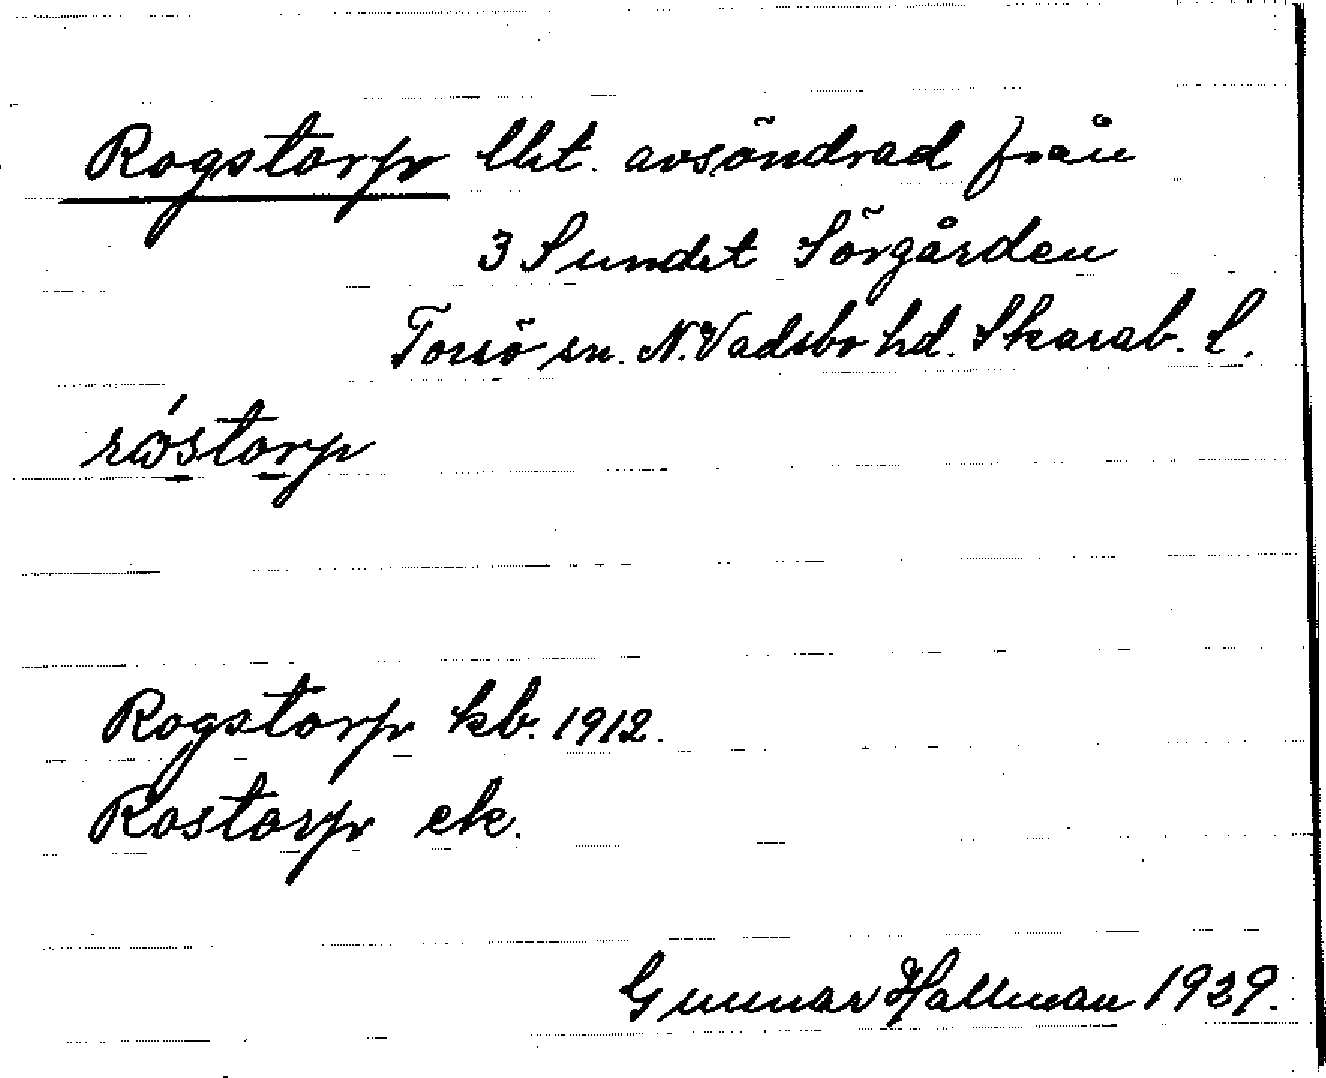 Rogstorp lht. avsöndrad från
3 Sundet Sörgården
Torsö sn. N. Vadsbo hd. Skarab. l.
Rogstorp kb. 1912.
Rostorp ek.
Gunnar Hallman 1929.